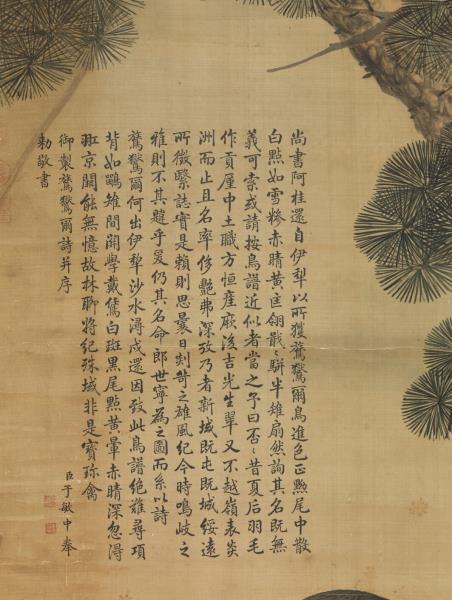 尚書阿桂還自伊犁以所獲爾鳥進色正黝尾中散
白點如雪糝赤睛黃匡翎戢〻駢半雉扇然詢其名既無
義可索或請按鳥譜近似者當之予曰否〻昔夏后羽毛
作貢厪中土職方恒產厥後吉光生翠又不越嶺表炎
洲而止且名率侈艷弗深攷乃者新域既屯既城綏遠
所徵繄誌實是賴則思曩日奇之雄風紀今時鳴岐之
雅則不其韙乎爰仍其名命郎世寧為之圖而系以詩
爾何出伊犁沙水潯戍還因致此鳥譜絕難尋項
背如鷴雉間關學戴鵀白斑黑尾點黃暈赤睛深忽淂
京闕能無憶故林聊將紀殊域非是寶珍禽
御製爾詩并序
臣于敏中奉
勅敬書